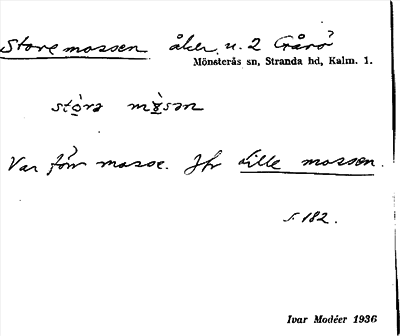 Store mossen åker, u. 2 Gårö
Mönsterås sn, Stranda hd, Kalm. 1.
stòrə mòsən
Var förr mosse. Jfr Lille mossen.
s. 182.
Ivar Modéer 1936